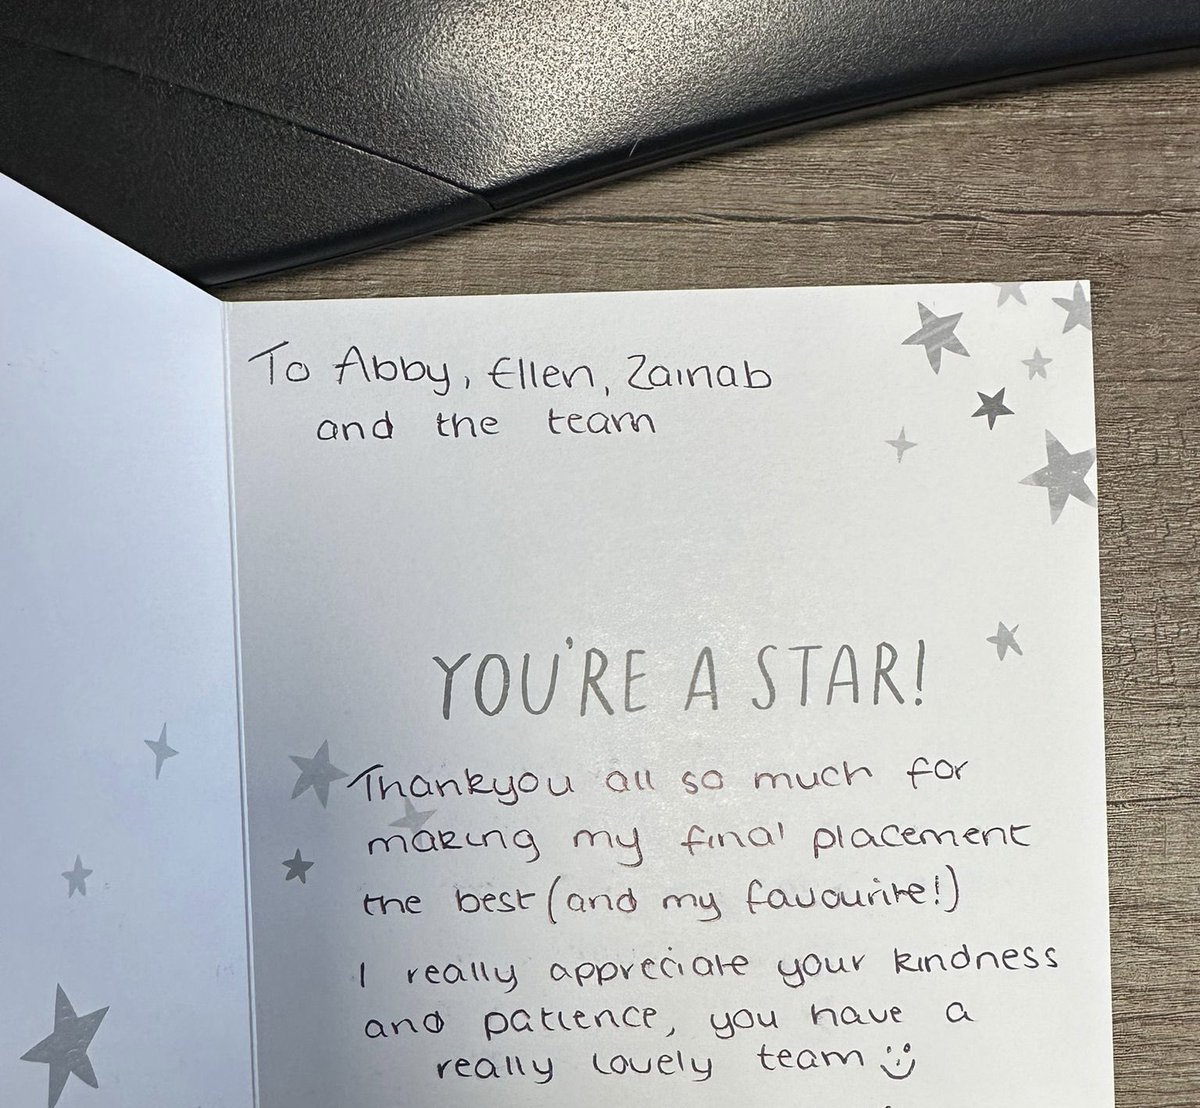 To Abby, Ellen, Zainab
and the team
YOU'RE A STAR!
Thankyou all so much for
making my final placement
the best (and my favourite!)
I really appreciate your kindness
and patience, you have a
really lovely team :)